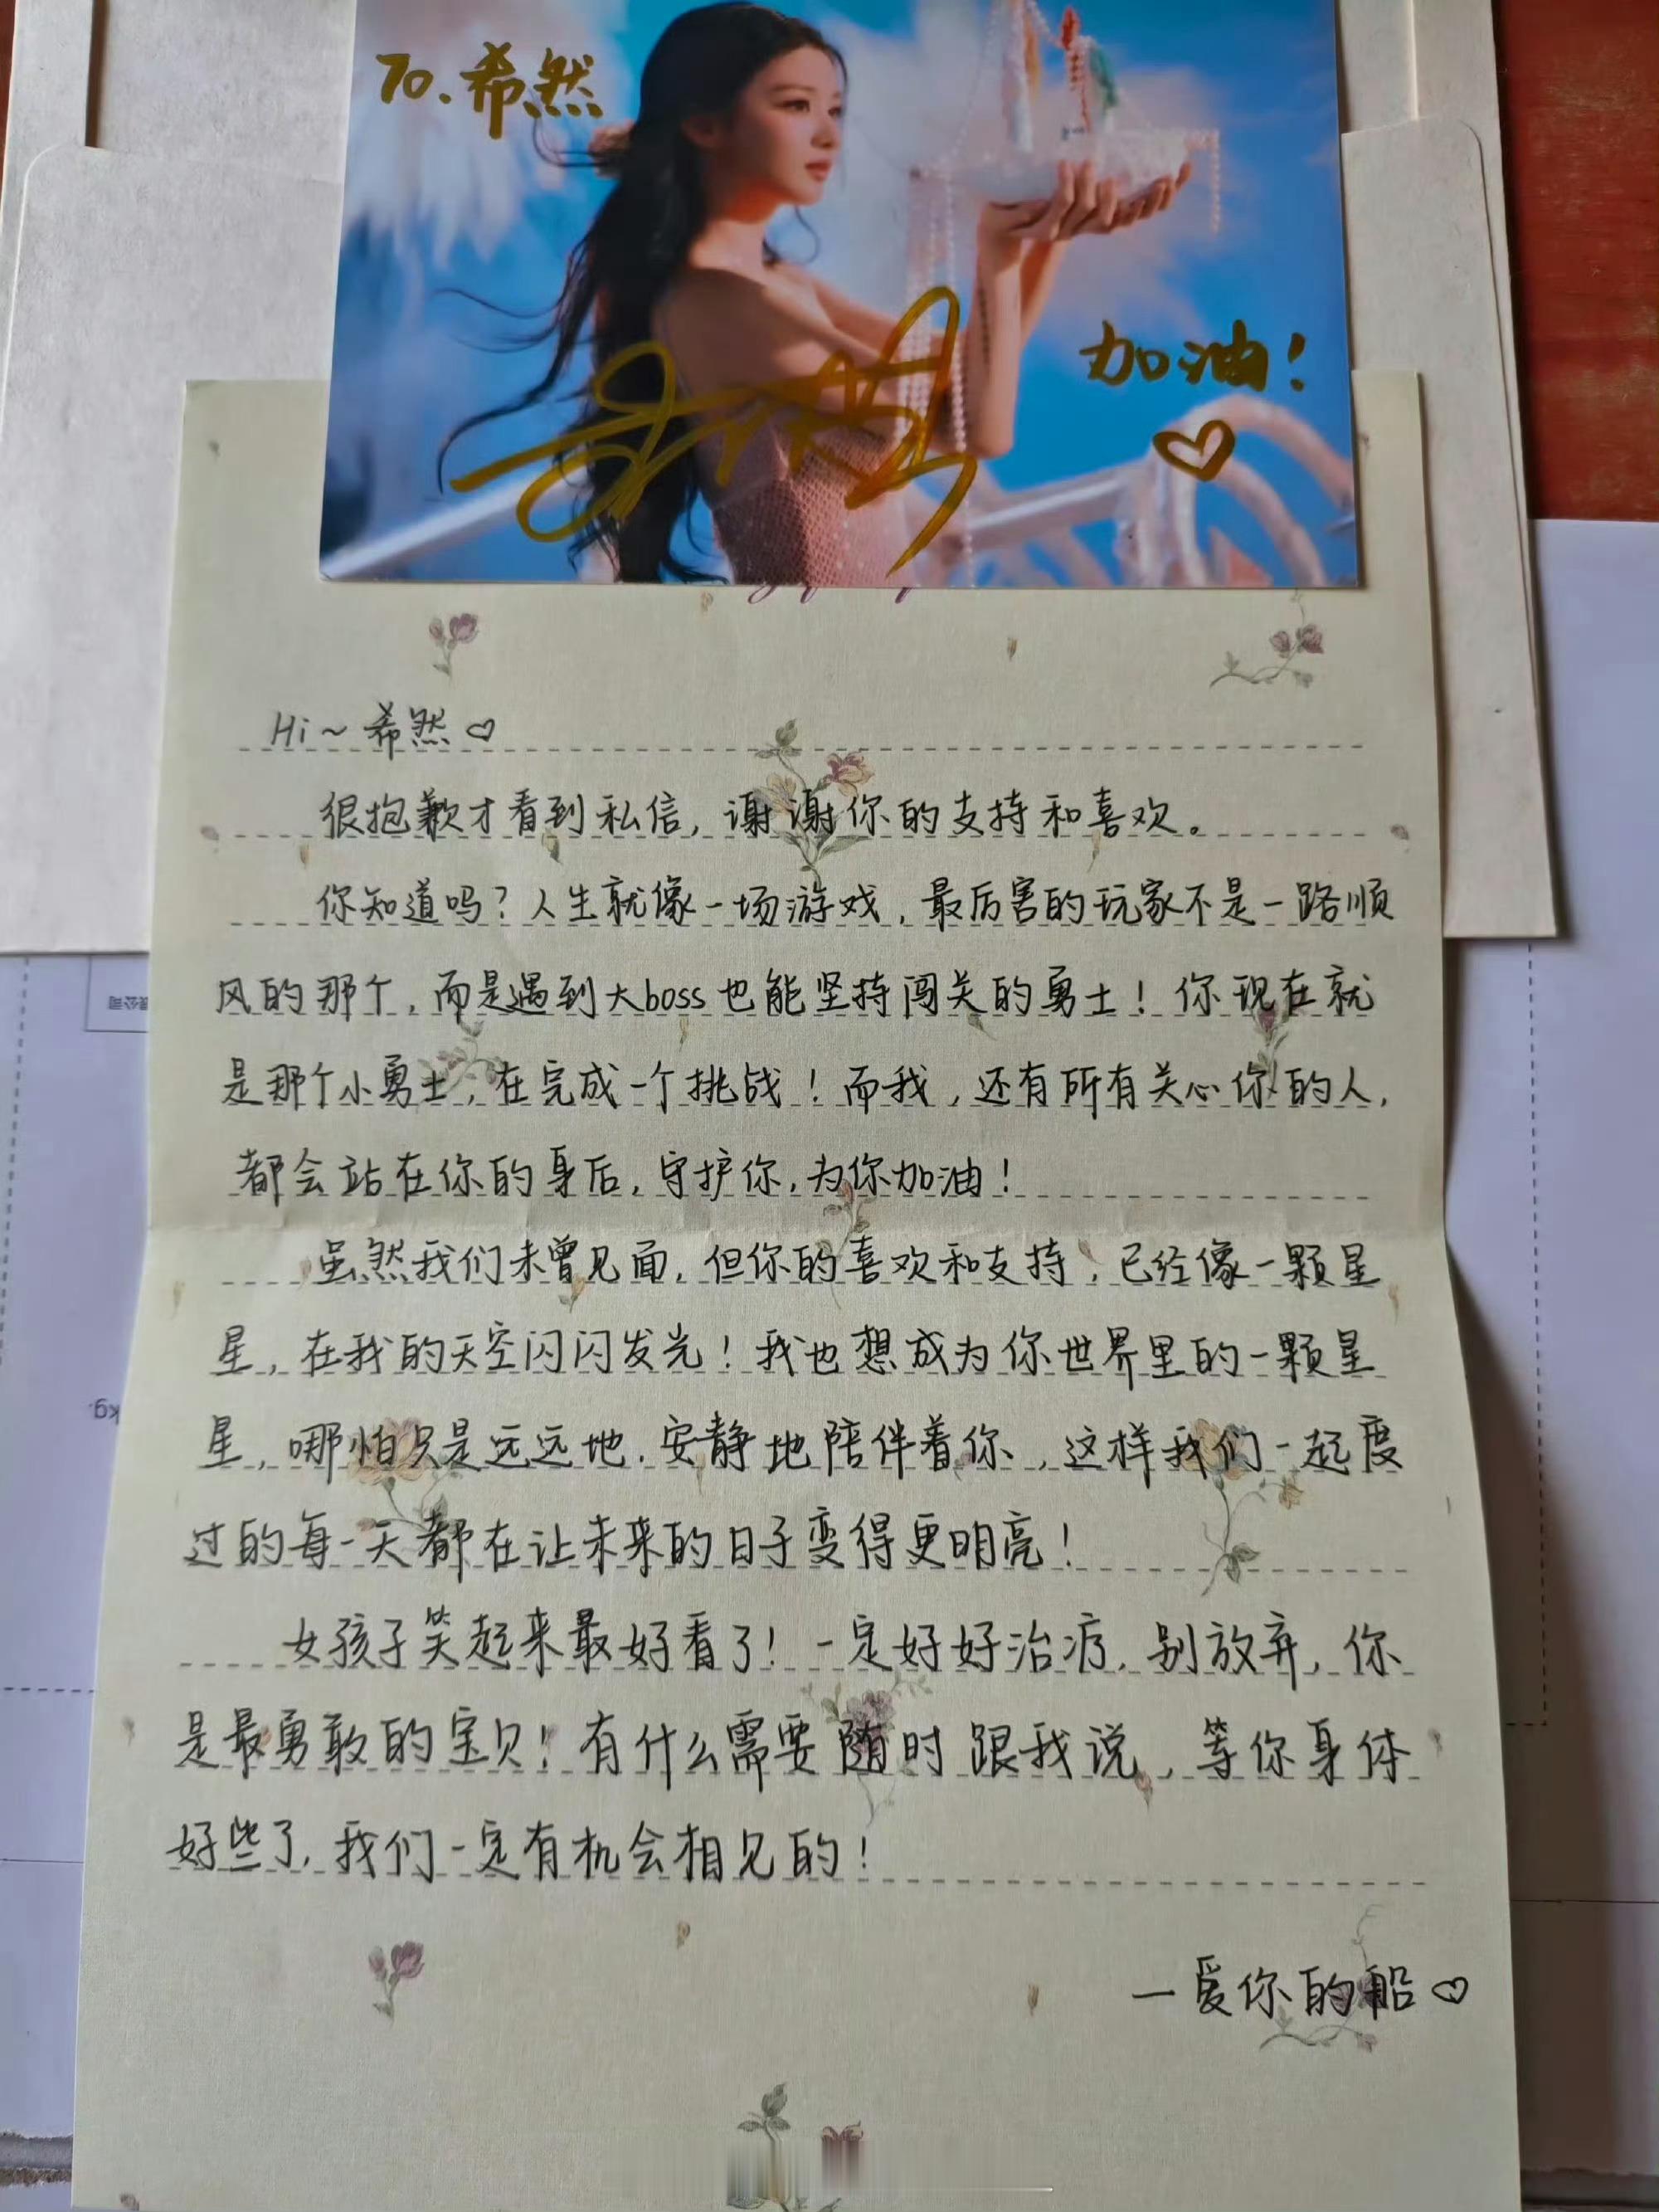 To.希然
加油!
Hi~希然♡
很抱歉才看到私信,谢谢你的支持和喜欢。
你知道吗?人生就像一场游戏,最厉害的玩家不是一路顺
风的那个,而是遇到大boss也能坚持闯关的勇士!你现在就
是那个小勇士,在完成一个挑战!而我,还有所有关心你的人,
都会站在你的身后,守护你,为你加油!
虽然我们未曾见面,但你的喜欢和支持,已经像一颗星
星,在我的天空闪闪发光!我也想成为你世界里的一颗星
星,哪怕只是远远地.安静地陪伴着你,这样我们一起度
过的每一天都在让未来的日子变得更明亮!
女孩子笑起来最好看了!一定好好治疗,别放弃,你
是最勇敢的宝贝!有什么需要随时跟我说,等你身体
好些了,我们一定有机会相见的!
—爱你的船♡
kg.